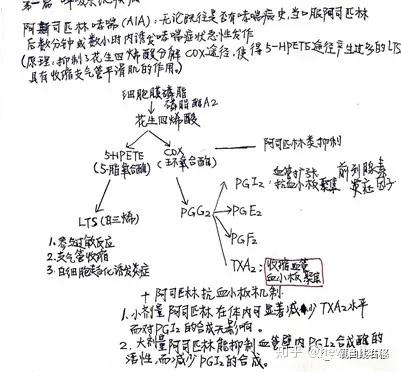 阿斯可匹林哮喘(AIA):无论既往是否有哮喘病史,当口服阿司匹林
后数分钟或数小时内诱发哮喘症状急性发作
(原理:抑制了花生四烯酸分解COX途径,使得5-HPETE途径产生过多的LTS
具有收缩支气管平滑肌的作用。)
细胞膜磷脂
磷脂酶A2
花生四烯酸
5-HPETE
(5-脂氧合酶)
COX
(环氧合酶)
阿司匹林类抑制
PGI2
血管扩张
抗血小板聚集
前列腺素
炎症因子
LTS(白三烯)
PGG2
PGE2
PGF2
TXA2:
收缩血管
血小板聚集
1.参与过敏反应
2.支气管收缩
3.白细胞趋化诱发炎症
+阿司匹林抗血小板机制
1.小剂量阿司匹林在体内可显著减少TXA2水平
而对PGI2的合成无影响。
2.大剂量阿司匹林能抑制血管壁内PGI2合成酶的
活性,而减少PGI2的合成。
知乎